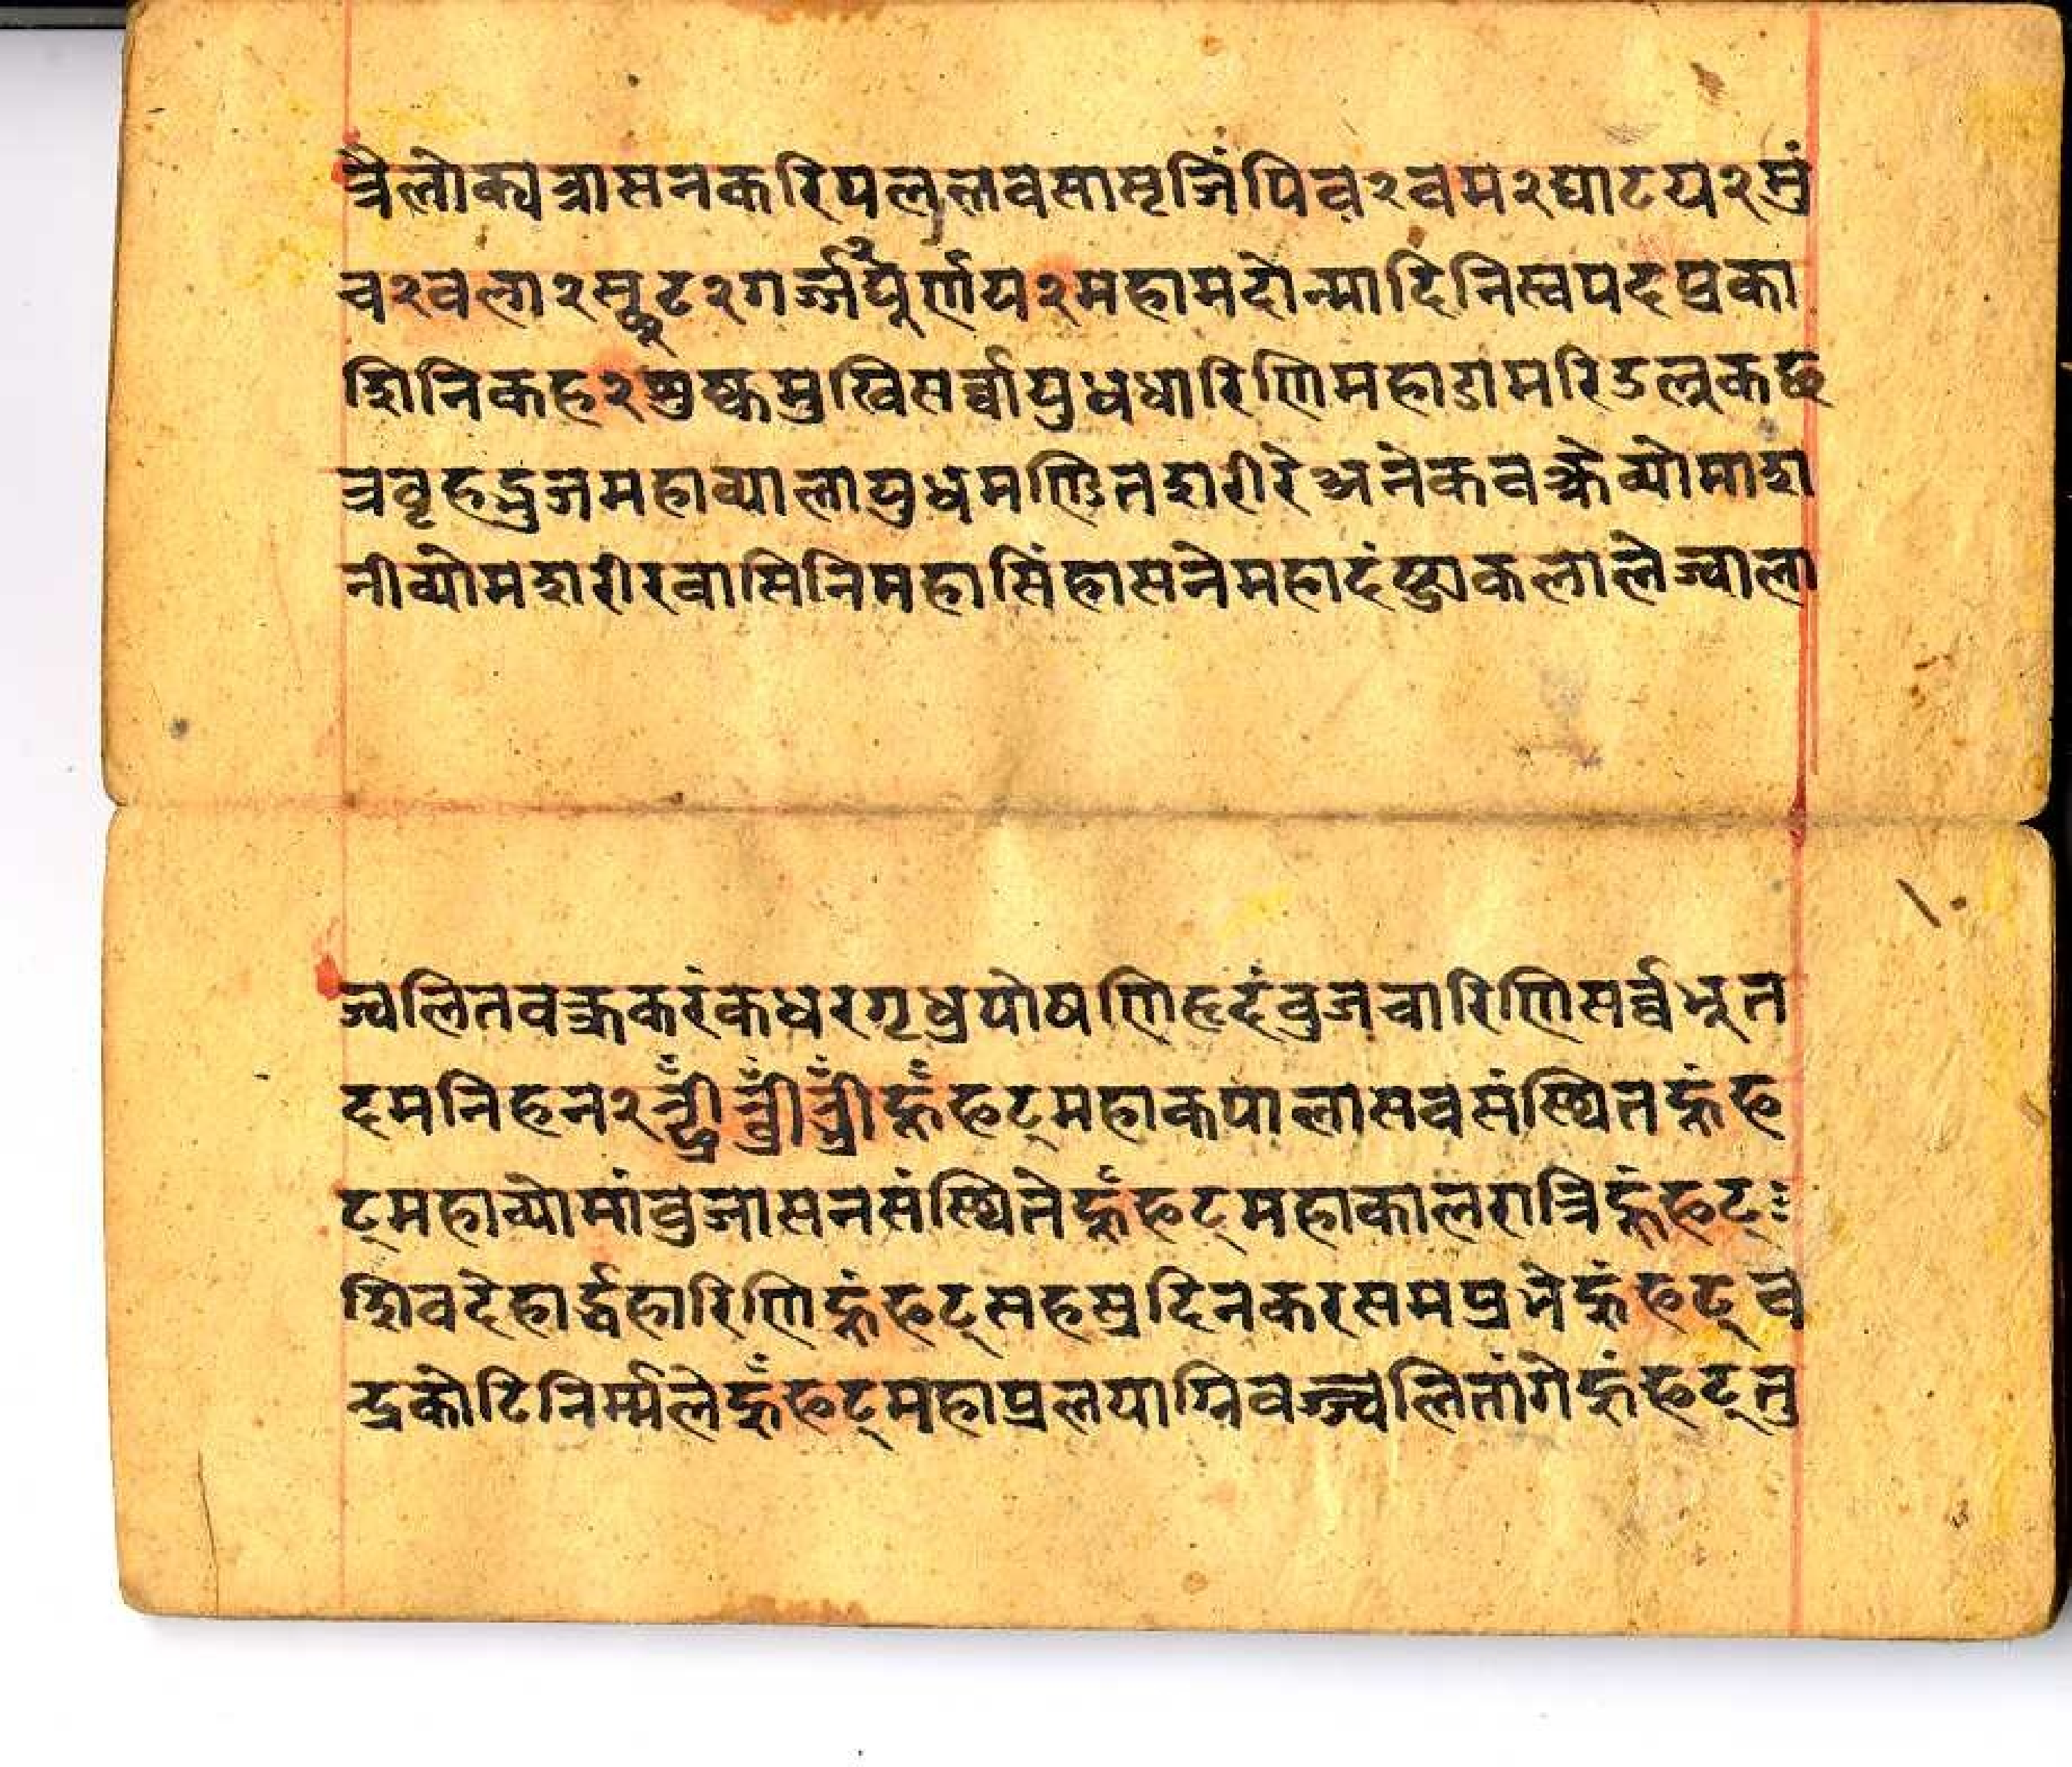 त्रैलोक्यत्रासनकरिपललवसासृजिंपिव२वम२घाटय२मुं
च२वला२स्फूट२गर्ज्जघूर्णय२महामदोन्मादिनिस्वपदप्रका
शिनिकह२शुष्कमुखिसर्व्वायुधधारिणिमहाडामरिडलूकछ
त्रवृहद्भुजमहाव्यालायुधमण्डितशरीरेअनेकवक्त्रेव्योमाश
नीव्योमशरीरवासिनिमहासिंहासनेमहादंष्ट्राकलालेज्वाला
ज्वलितवक्त्रकरंकधरगृध्रयोषणिहृदंवुजचारिणिसर्व्वभूत
दमनिहन२ हूंफट्महाकपालासवसंस्थितहूंफ
ट्महाव्योमांवुजासनसंस्थितेहूंफट्महाकालरात्रिहूंफट्
शिवदेहार्द्धहारिणिहूंफट्सहस्रदिनकरसमप्रभेहूंफट्च
न्द्रकोटिनिर्म्मलेहूंफट्महाप्रलयाग्निवज्ज्वलितांगेहूंफट्तु